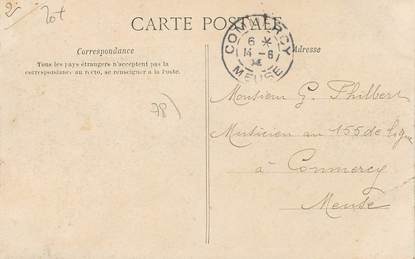 2-
20t
CARTE POSTALE
COMMERCY
6 *
14 - 6
MEUSE
Correspondance
Adresse
Tous les pays étrangers n'acceptent pas la
correspondance au recto, se renseigner à la Poste.
78)
Monsieur G. Philbert
Musicien au 155 de ligne
à Commercy
Meuse